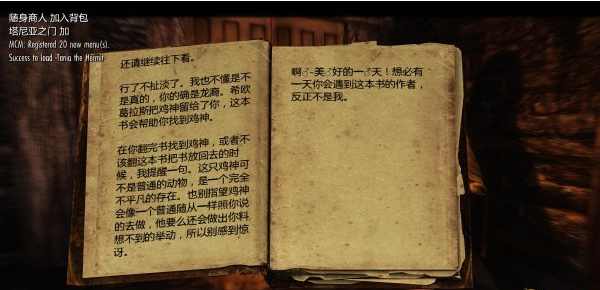 随身商人 加入背包
塔尼亚之门 加
MCM: Registered 20 new menu(s).
Success to load -Tania the Hermit
还请继续往下看。
行了不扯淡了。我也不懂是不
是真的，你的确是龙裔。希欧
葛拉斯把鸡神留给了你，这本
书会帮助你找到鸡神。
在你翻完书找到鸡神，或者不
该翻这本书把书放回去的时
候，我提醒一句。这只鸡神可
不是普通的动物，是一个完全
不平凡的存在。也别指望鸡神
会像一个普通随从一样照你说
的去做，他要么还会做出你料
想不到的举动，所以别感到惊
讶。
啊♂-美♂好的一♂天！想必有
一天你会遇到这本书的作者，
反正不是我。